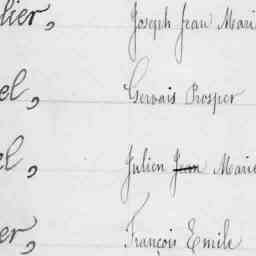 lier, Joseph Jean Mari
el, Gervais Prosper
el, Julien Jean Marie
er, François Emile